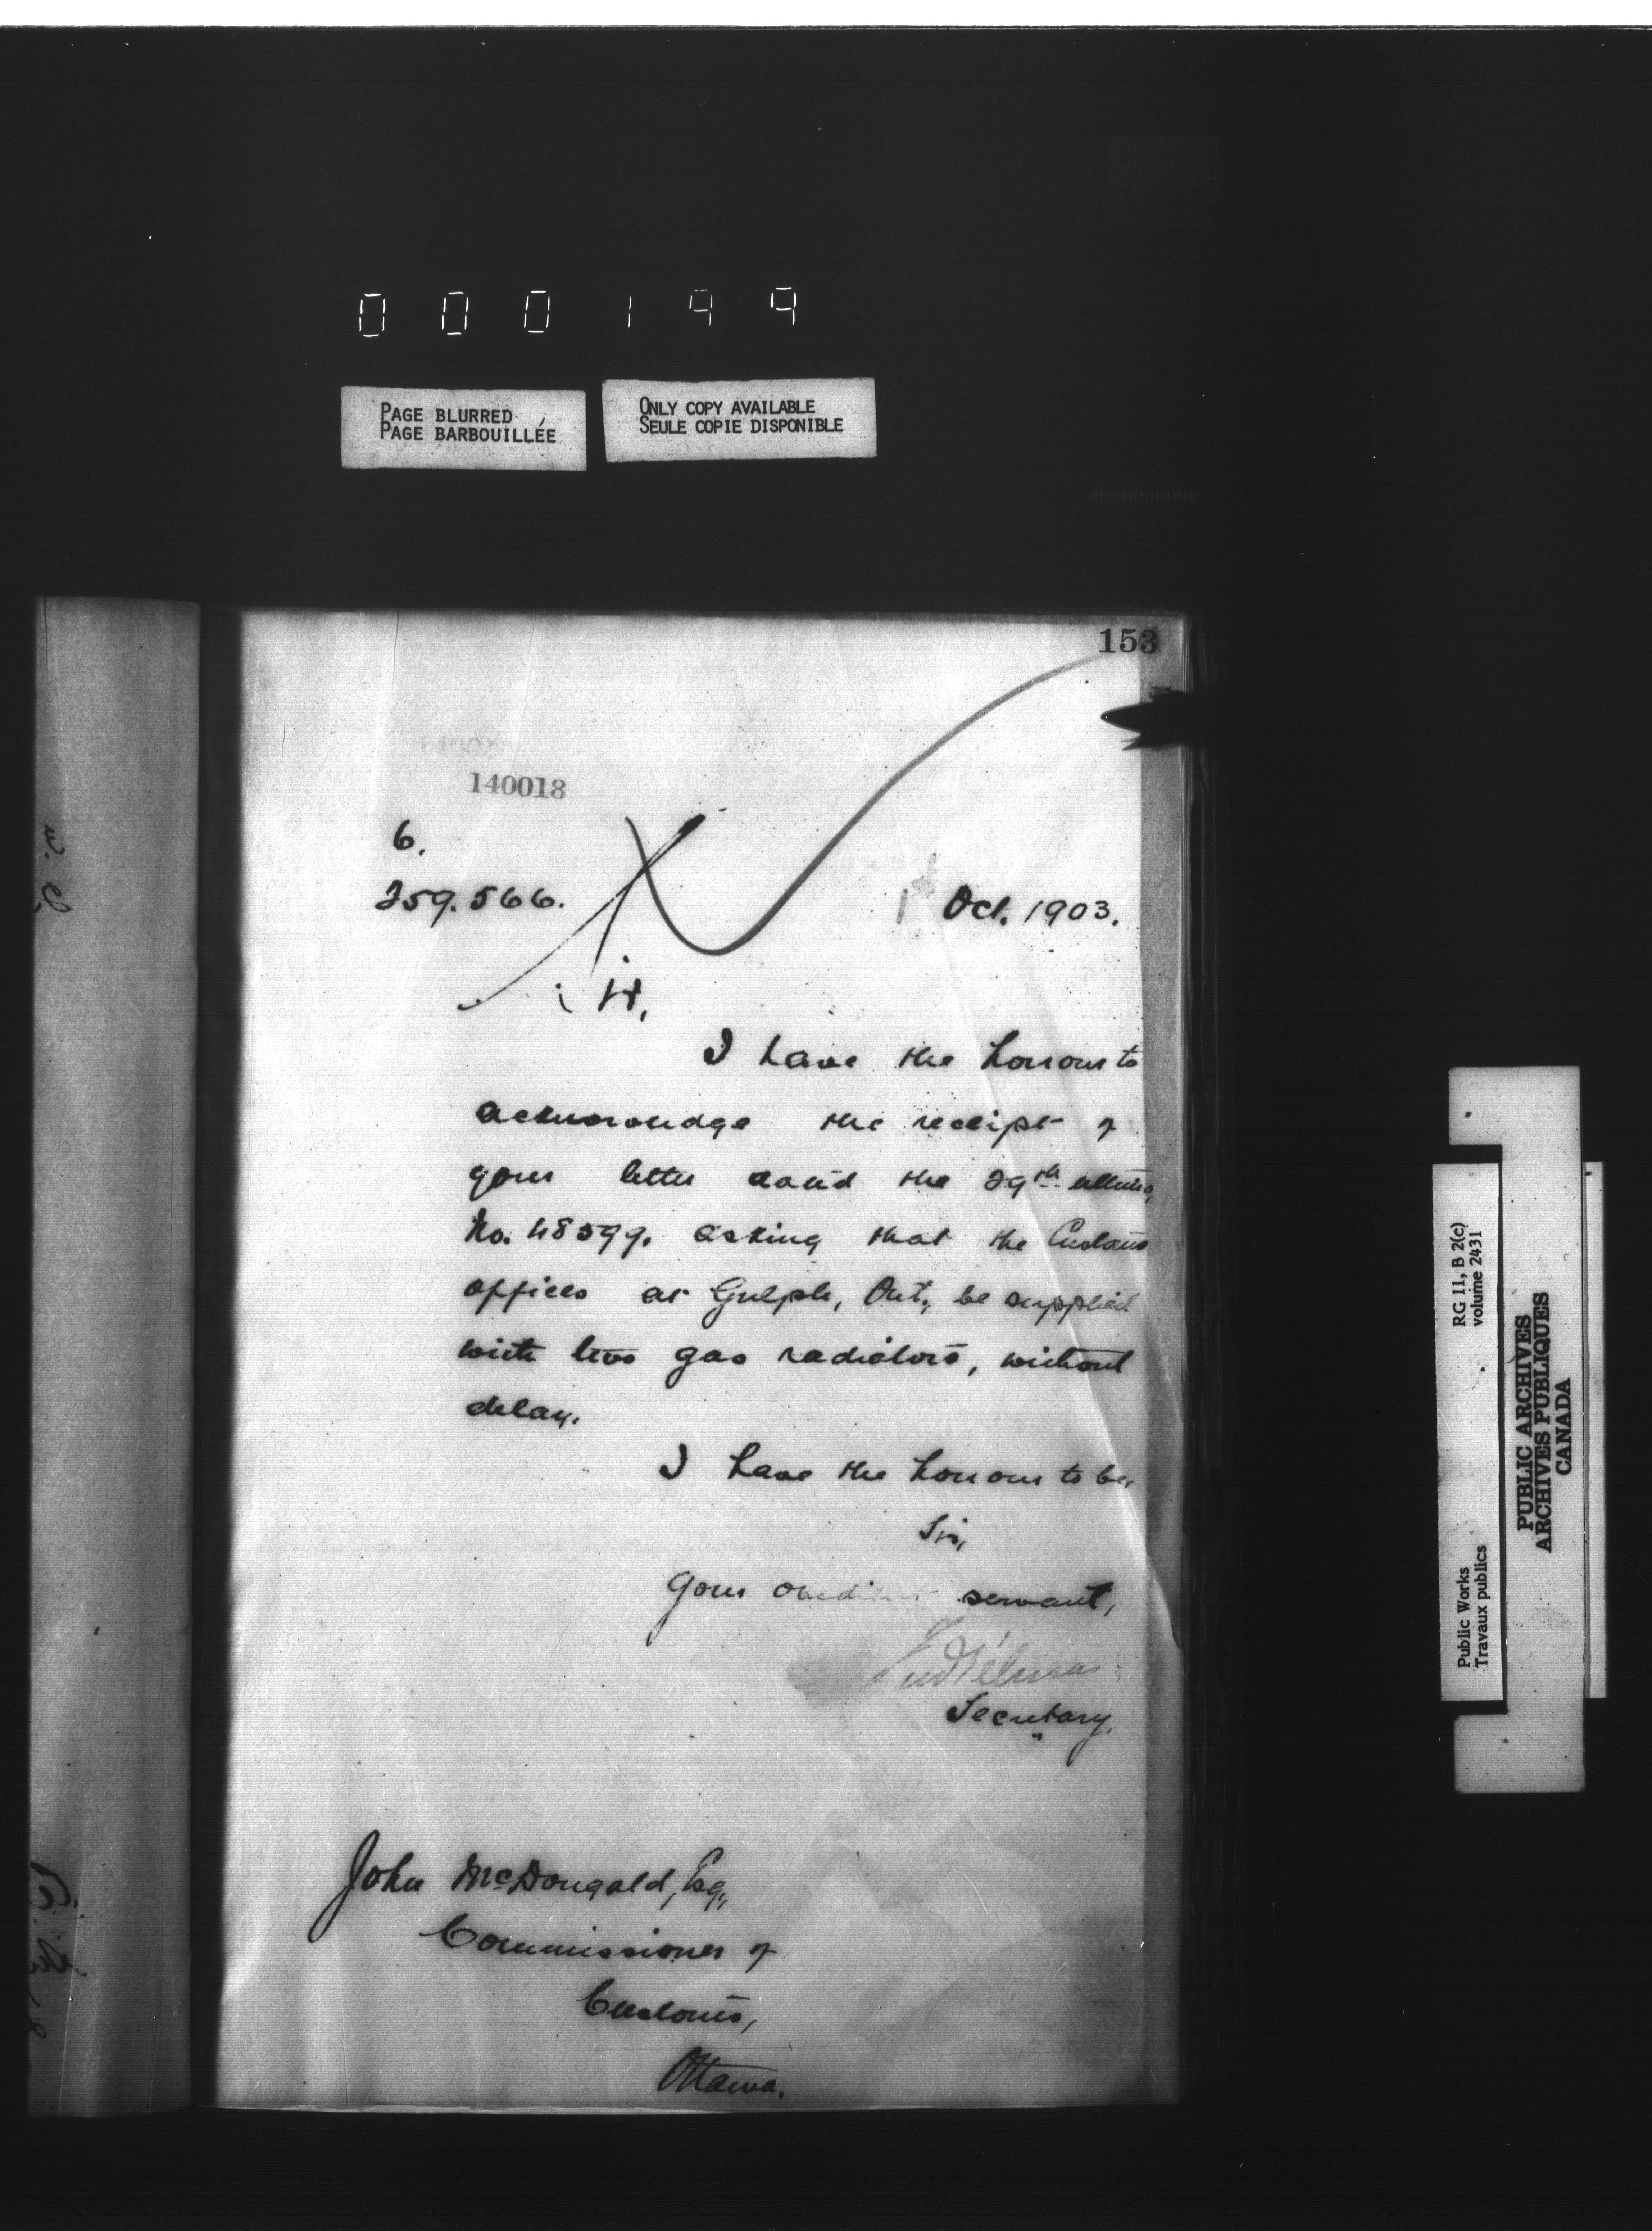 000199
PAGE BLURRED
PAGE BARBOUILLÉE
ONLY COPY AVAILABLE
SEULE COPIE DISPONIBLE
153
140018
6.
259.566.
1st Oct. 1903.
I have the honour to
acknowledge the receipt of
your letter dated the 29th ultimo,
No. 48599. asking that the Customs
offices at Gulph, Ont., be supplied
with two gas radiators, without
delay.
I have the honour to be,
Sir,
Your obedient servant,
Secretary.
John McDougald, Esq.,
Commissioner of
Customs,
Ottawa.
RG 11, B 2(c)
volume 2431
Public Works
Travaux publics
PUBLIC ARCHIVES
ARCHIVES PUBLIQUES
CANADA